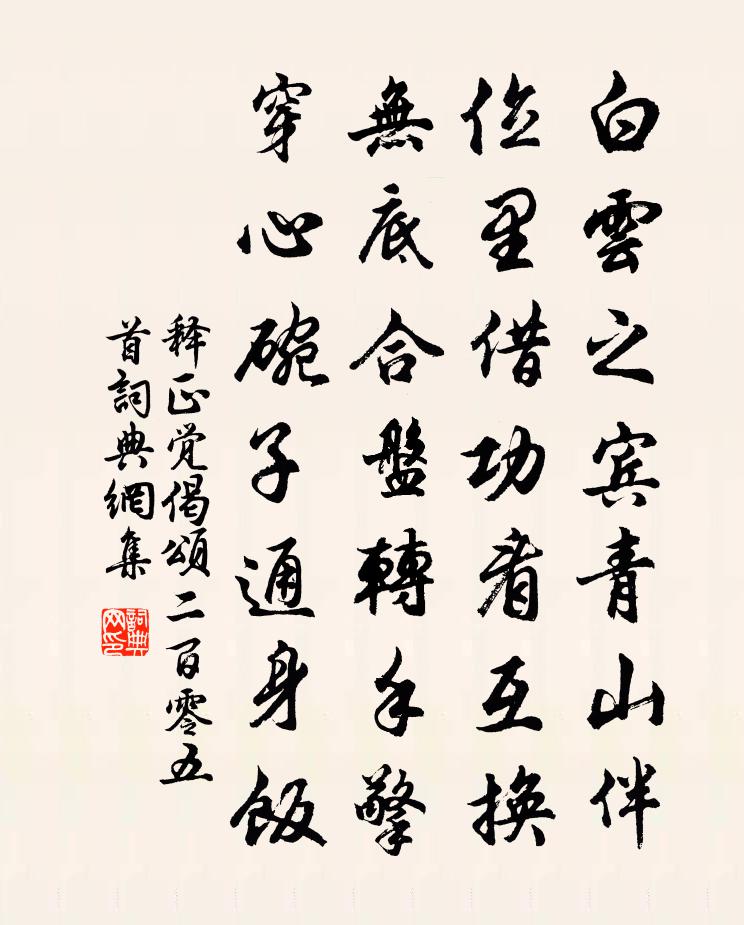 白雲之宾青山伴
位里借功看互换
無底合盤轉手擎
穿心碗子通身飯
释正觉偈頌二百零五
首詞典網集
詞典网印